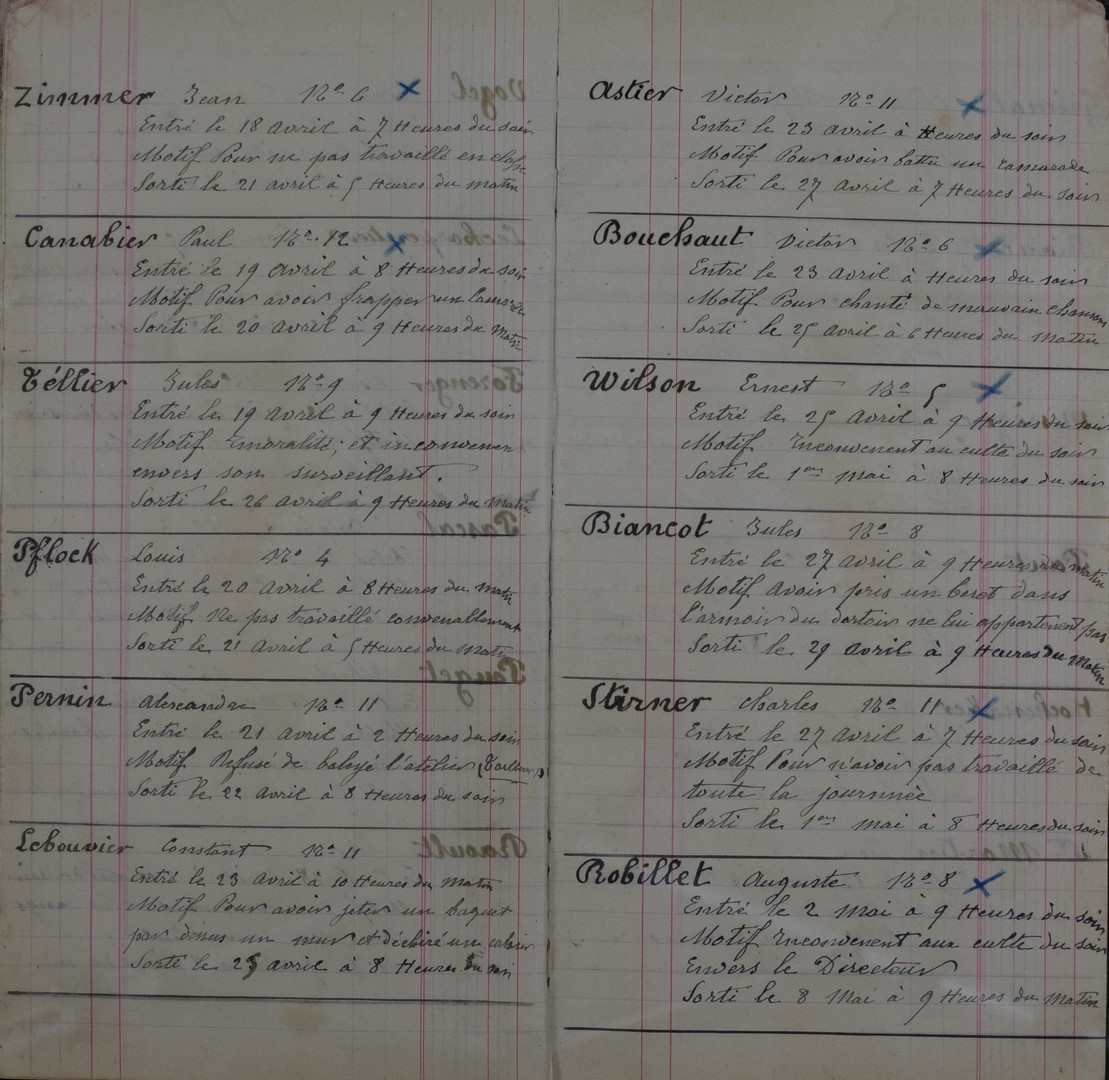 Zimmer Jean No 6
Entré le 18 avril à 7 Heures du soir
Motif Pour ne pas travaillé en classe
Sorti le 21 avril à 5 Heures du matin
Canabier Paul No 12
Entré le 19 avril à 8 Heures du soir
Motif Pour avoir frapper un
Sorti le 20 avril à 9 Heures du Matin
Téllier Jules No 9
Entré le 19 avril à 9 Heures du soir
Motif Imoralité; et inconvenent
envers son surveillant.
Sorti le 26 avril à 9 Heures du Matin
Pflock Louis No 4
Entré le 20 avril à 8 Heures du Matin
Motif Ne pas travaillé convenablement
Sorti le 21 avril à 5 Heures du Matin
Pernin Alexandre No 11
Entré le 21 avril à 2 Heures du soir
Motif Refusé de baleyé l'atelier (Tailleurs)
Sorti le 22 avril à 8 Heures du soir
Lebouvier Constant No 11
Entré le 23 avril à 10 Heures du Matin
Motif Pour avoir jeter un baquet
par dessus un mur et déchiré un cahier
Sorti le 25 avril à 8 Heures du soir
Astier Victor No 11
Entré le 23 avril à Heures du soir
Motif Pour avoir battu un camarade
Sorti le 27 avril à 7 Heures du soir
Bouchaut Victor No 6
Entré le 23 avril à Heures du soir
Motif Pour chanté de mauvain chansons
Sorti le 25 avril à 6 Heures du Matin
Wilson Ernest No 5
Entré le 25 avril à 9 Heures du soir
Motif Inconvenent au culte du soir
Sorti le 1er mai à 8 Heures du soir
Biancot Jules No 8
Entré le 27 avril à 9 Heures du matin
Motif avoir pris un beret dans
l'armoir du dortoir ne lui appartenent pas
Sorti le 29 avril à 9 Heures du Matin
Stirner Charles No 11
Entré le 27 avril à 7 Heures du soir
Motif Pour n'avoir pas travaillé de
toute la journnée
Sorti le 1er mai à 8 Heures du soir
Robillet Auguste No 8
Entré le 2 Mai à 9 Heures du soir
Motif Inconvenent aux culte du soir
Envers le Directeur
Sorti le 8 Mai à 9 Heures du Matin